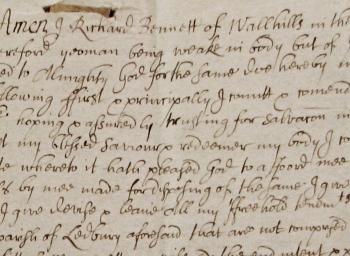 Amen I Richard Bennett of Wallhills in the
ereford yeoman being weake in body but of
ed to Almighty God for the same doe hereby m
llowing ffirst & principally I comitt & comend
hoping & assured by trusting for Salvacon in
st my blessed Saviour & redeemer my body I co
te whereto it hath pleased God to afoord mee
s by mee made for disposeing of the same I give
I give devise & leave all my ffreehold tenemts
parish of Ledbury aforesaid that are not comprised